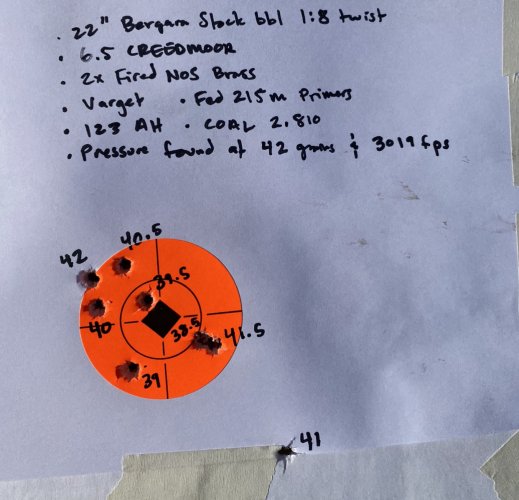 • 22" Bergara Stock bbl 1:8 twist
• 6.5 CREEDMOOR
• 2x Fired Nos Brass
• Varget • Fed 215m Primers
• 123 AH • COAL 2.810
• Pressure found at 42 grains & 3019 fps
40.5
42
39.5
40
38.5
41.5
39
41